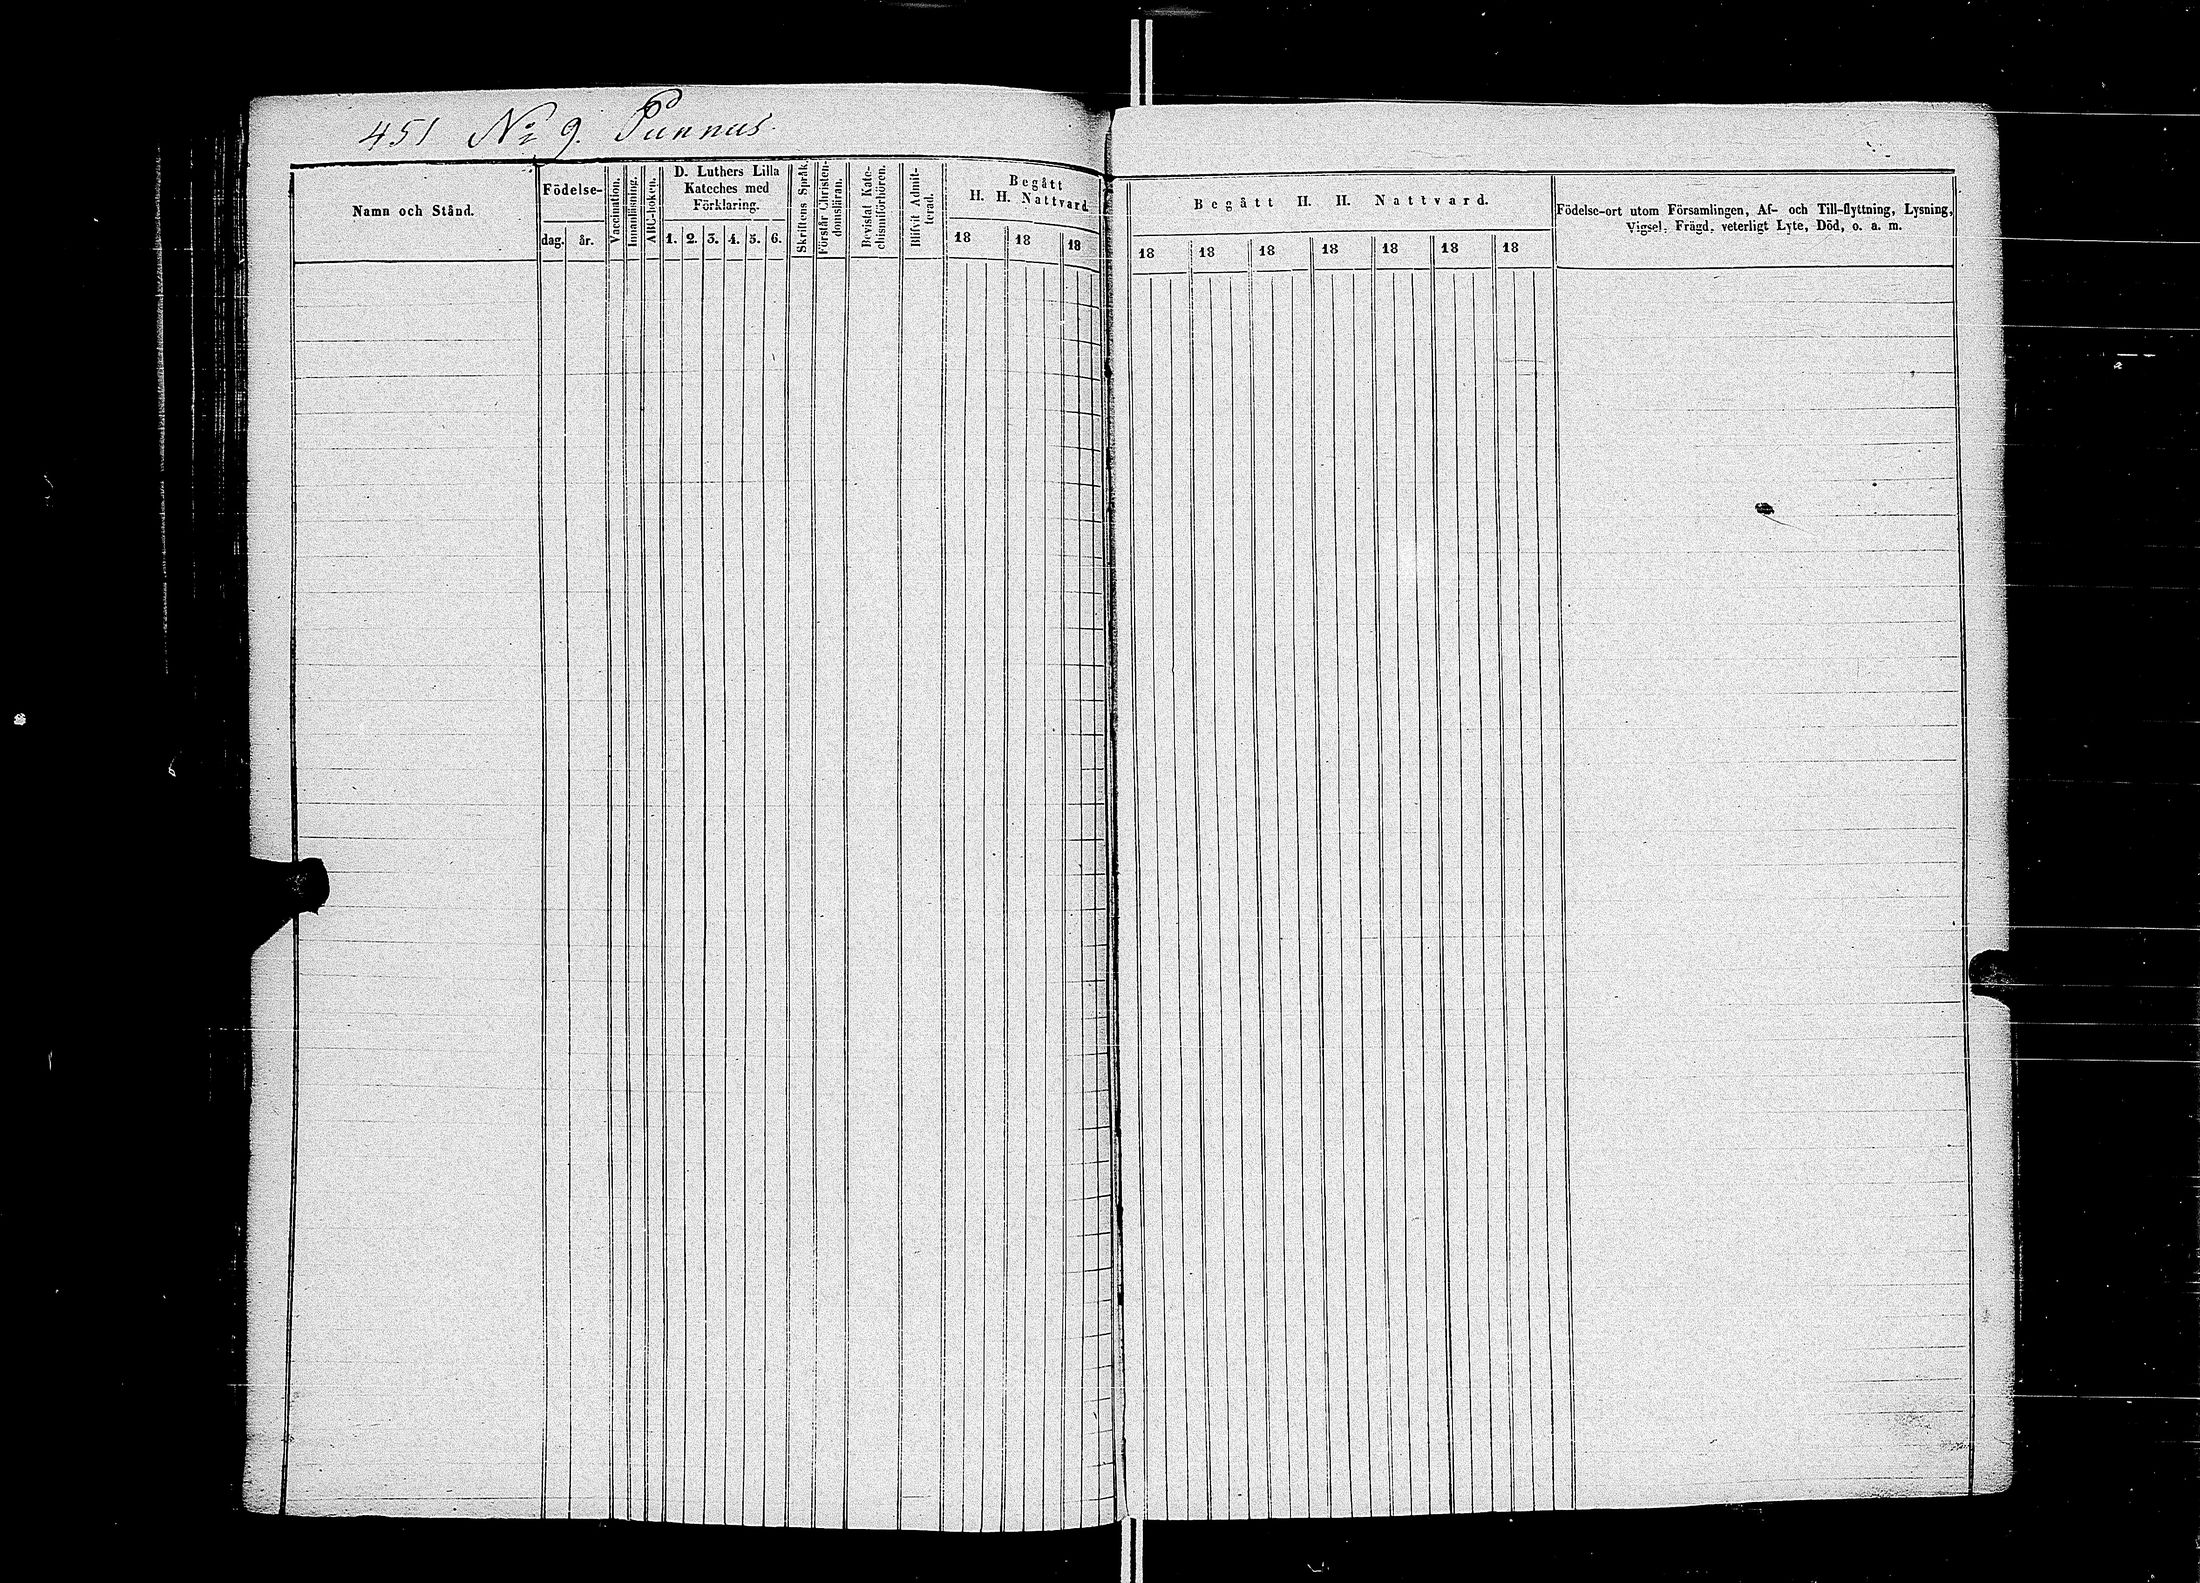 451 No 9. Punnus.
Namn och Stånd.
Födelse-
dag. år.
Vaccination.
Innanläsning.
ABC-boken.
D. Luthers Lilla
Kateches med
Förklaring.
1. 2. 3. 4. 5. 6.
Skriftens Språk.
Förstår Christen-
domsläran.
Bevistat Kate-
chismiförhören.
Blifvit Admit-
terad.
Begått
H. H. Nattvard
18 18 18
Begått H. H. Nattvard.
18 18 18 18 18 18 18
Födelse-ort utom Församlingen, Af- och Till-flyttning, Lysning,
Vigsel, Frägd, veterligt Lyte, Död, o. a. m.